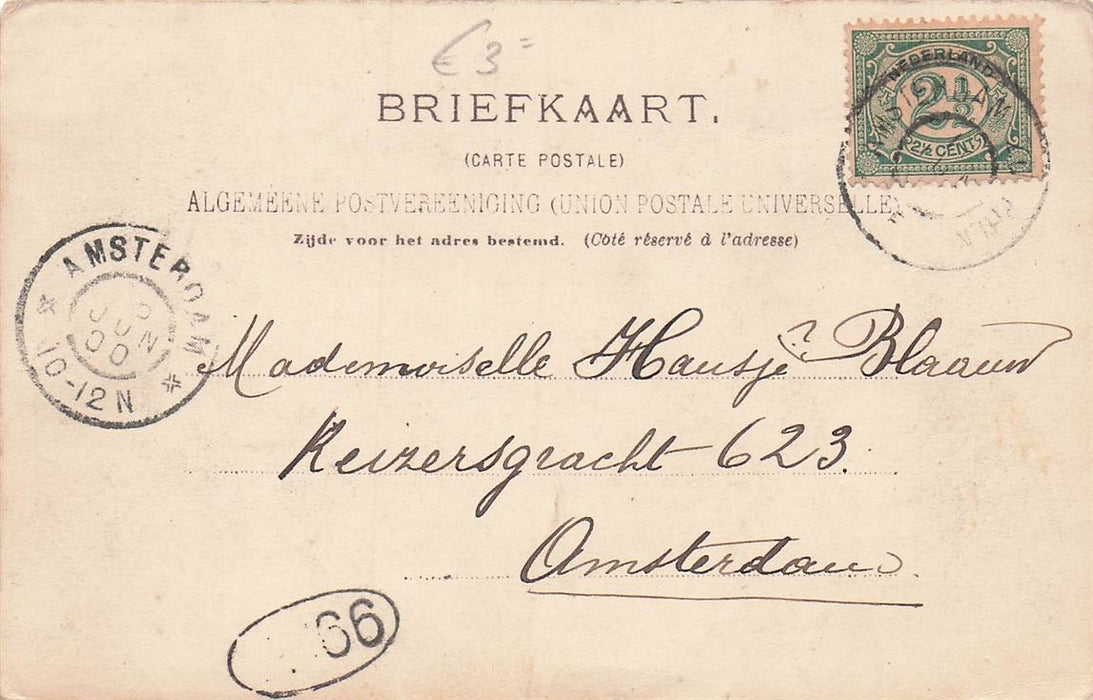 € 3=
BRIEFKAART.
(CARTE POSTALE)
ALGEMEENE POSTVEREENIGING (UNION POSTALE UNIVERSELLE)
Zijde voor het adres bestemd. (Côté réservé à l'adresse)
NEDERLAND
2½
2½ CENT
AMSTERDAM
JUN
00
10-12N
Mademoiselle Hansje Blaauw
Keizersgracht 623.
Amsterdam
66